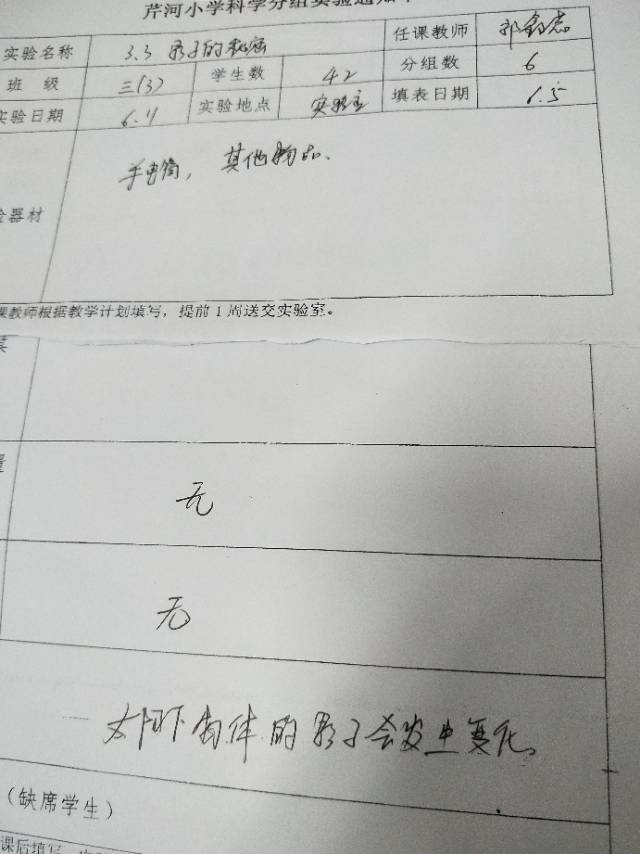 芹河小学科学分组实验通知单
实验名称 3.3 影子的秘密 任课教师
班 级 三(3) 学生数 42 分组数 6
实验日期 6.11 实验地点 实验室 填表日期 6.5
验器材 手电筒，其他物品.
课教师根据教学计划填写，提前1周送交实验室。
量 无
无
太阳下物体的影子会发生变化。
（缺席学生）
课后填写